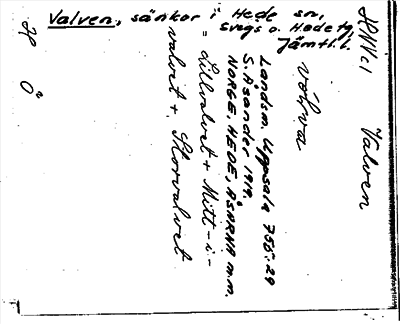 Valven, sänkor i Hede sn,
Svegs o. Hede tg,
Jämtl. l.
Valven
vólva
Landsm. Uppsala 755:29
S. Åsander 1919.
NORGE, HEDE, ÅSARNA m.m.
= Lillvalvet + Mitt-i-
valvet + Storvalvet